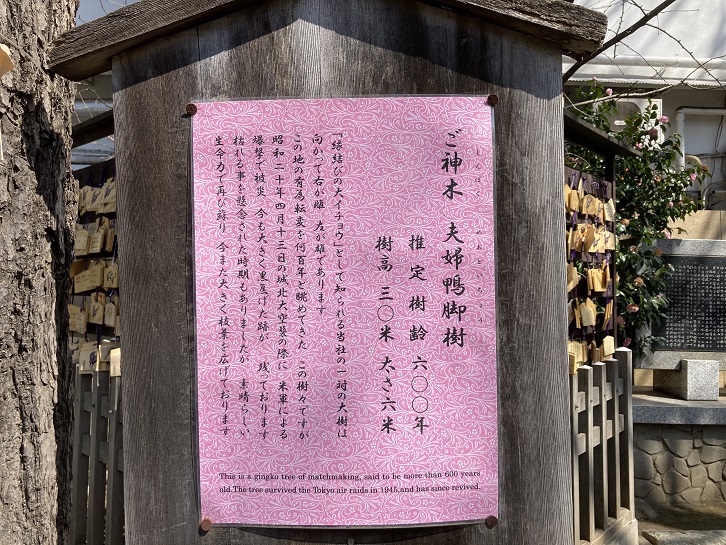 ご神木　夫婦鴨脚樹
しんぼく　めおといちょう
推定樹齢 六〇〇年
樹高 三〇米 太さ六米
「縁結びの大イチョウ」として知られる当社の一対の大樹は
向かって右が雌 左が雄であります
この地の有為転変を何百年と眺めてきた この樹々ですが
昭和二十年四月十三日の城北大空襲の際に 米軍による
爆撃で被災 今も大きく黒焦げた跡が 残っております
枯れる事を懸念された時期もありましたが 素晴らしい
生命力で再び蘇り 今また大きく枝葉を広げております
This is a gingko tree of matchmaking, said to be more than 600 years
old.The tree survived the Tokyo air raids in 1945,and has since revived.